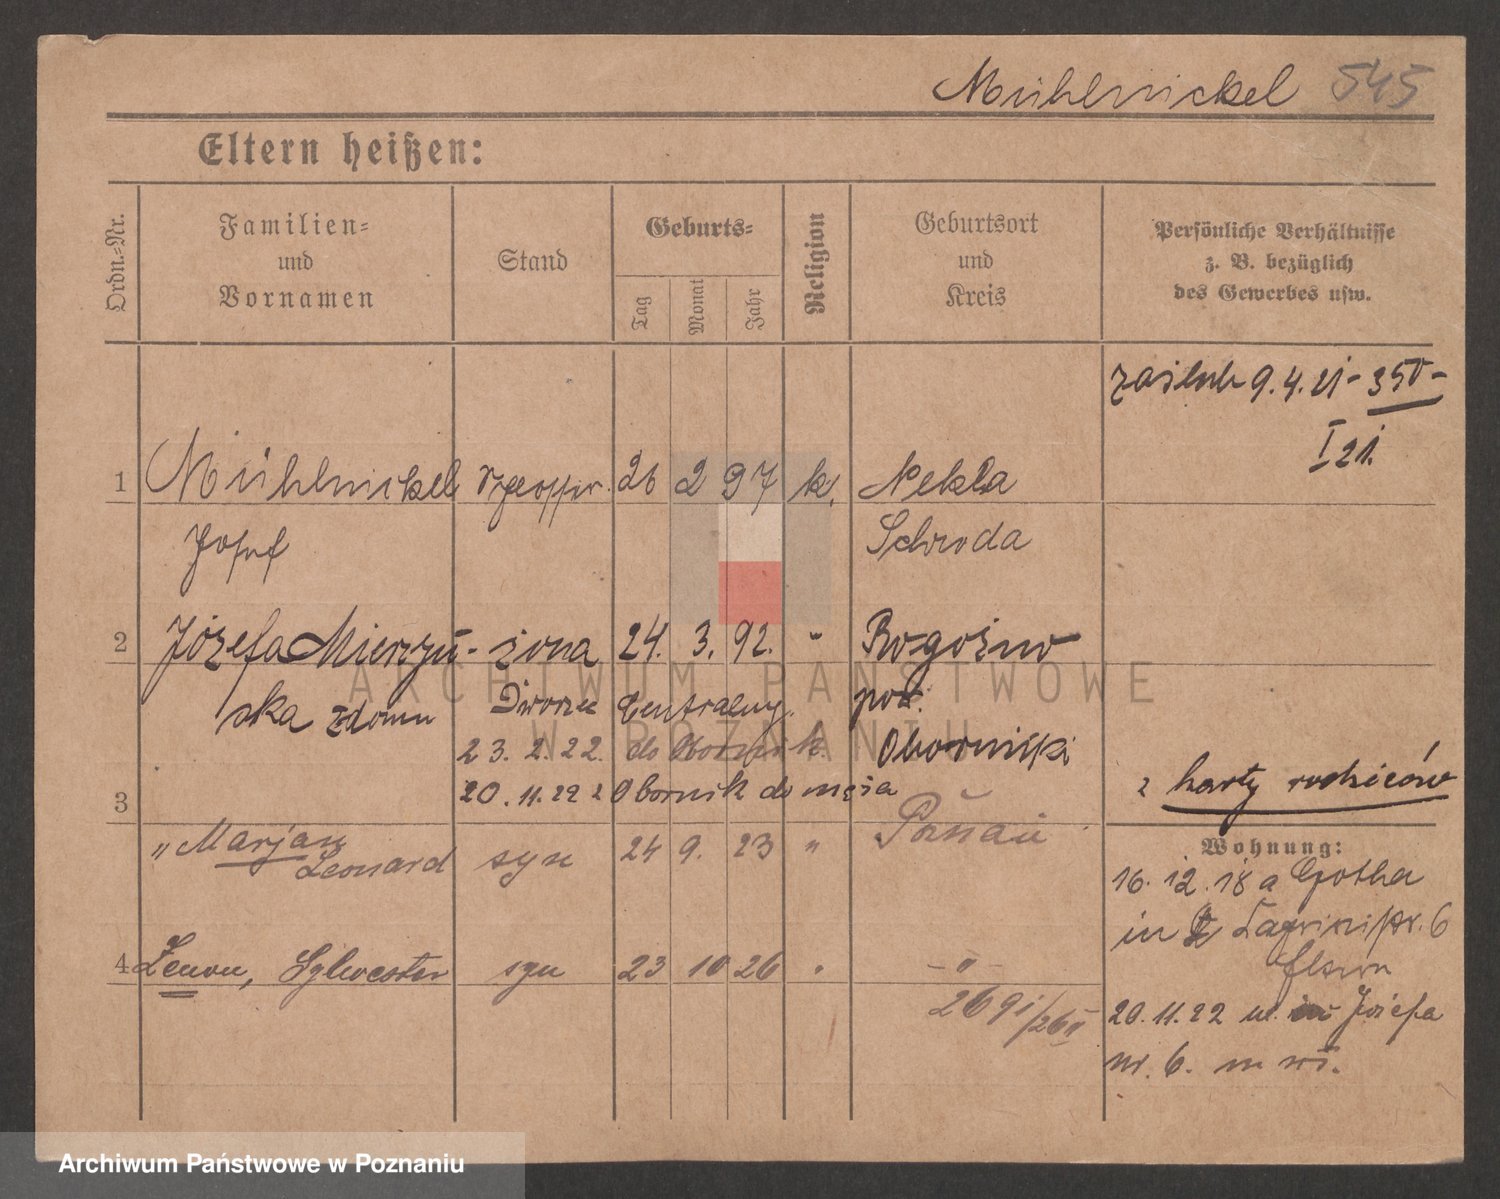 Mühlnickel 545
Eltern heißen:
Ordn.-Nr.
Familien- und Vornamen
Stand
Geburts-
Tag
Monat
Jahr
Religion
Geburtsort und Kreis
Persönliche Verhältnisse z. B. bezüglich des Gewerbes usw.
zaślub 9.4.21 - 350 -
I 21.
1 Mühlnickel 26 2 97 k. Nekla
Josef Schroda
2 Józefa Mierzyń- żona 24. 3. 92. " Rogoźno
ska z domu Dworzec Centralny. pow.
23. 2. 22. do Obornik. Obornicki
20. 11. 22 z Obornik do męża
z karty rodziców
3
" Marjan Leonard syn 24 9. 23 " Poznań
Wohnung:
16. 12. 18 a Gotha
in 6
4 Zenon, Sylwester syn 23 10 26 " - " -
2691/26 II
20. 11. 22 ul. Józefa
nr. 6. m
ARCHIWUM PAŃSTWOWE
W POZNANIU
Archiwum Państwowe w Poznaniu